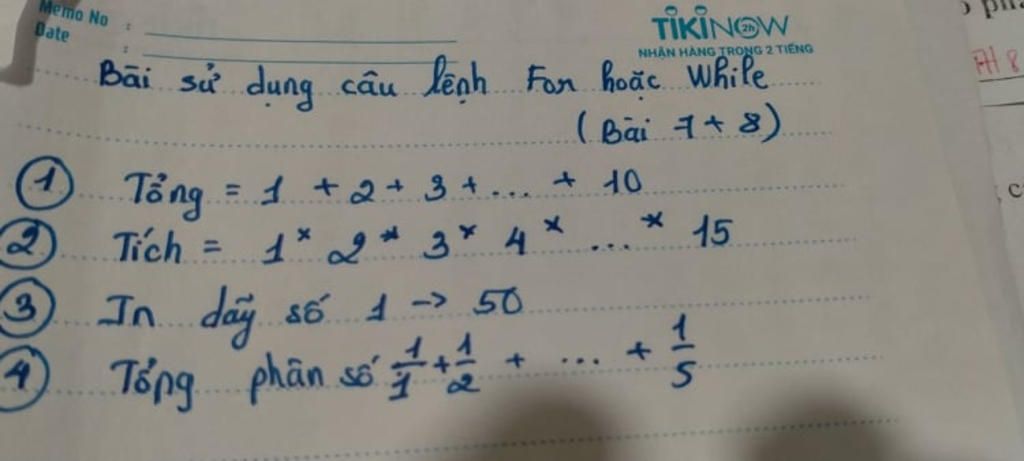 Memo No :
Date :
TIKINOW 2h
NHẬN HÀNG TRONG 2 TIẾNG
Bài sử dụng câu lệnh For hoặc While
(Bài 7 + 8)
① Tổng = 1 + 2 + 3 + ... + 10
② Tích = 1 * 2 * 3 * 4 * ... * 15
③ In dãy số 1 -> 50
④ Tổng phân số 1/1 + 1/2 + ... + 1/5